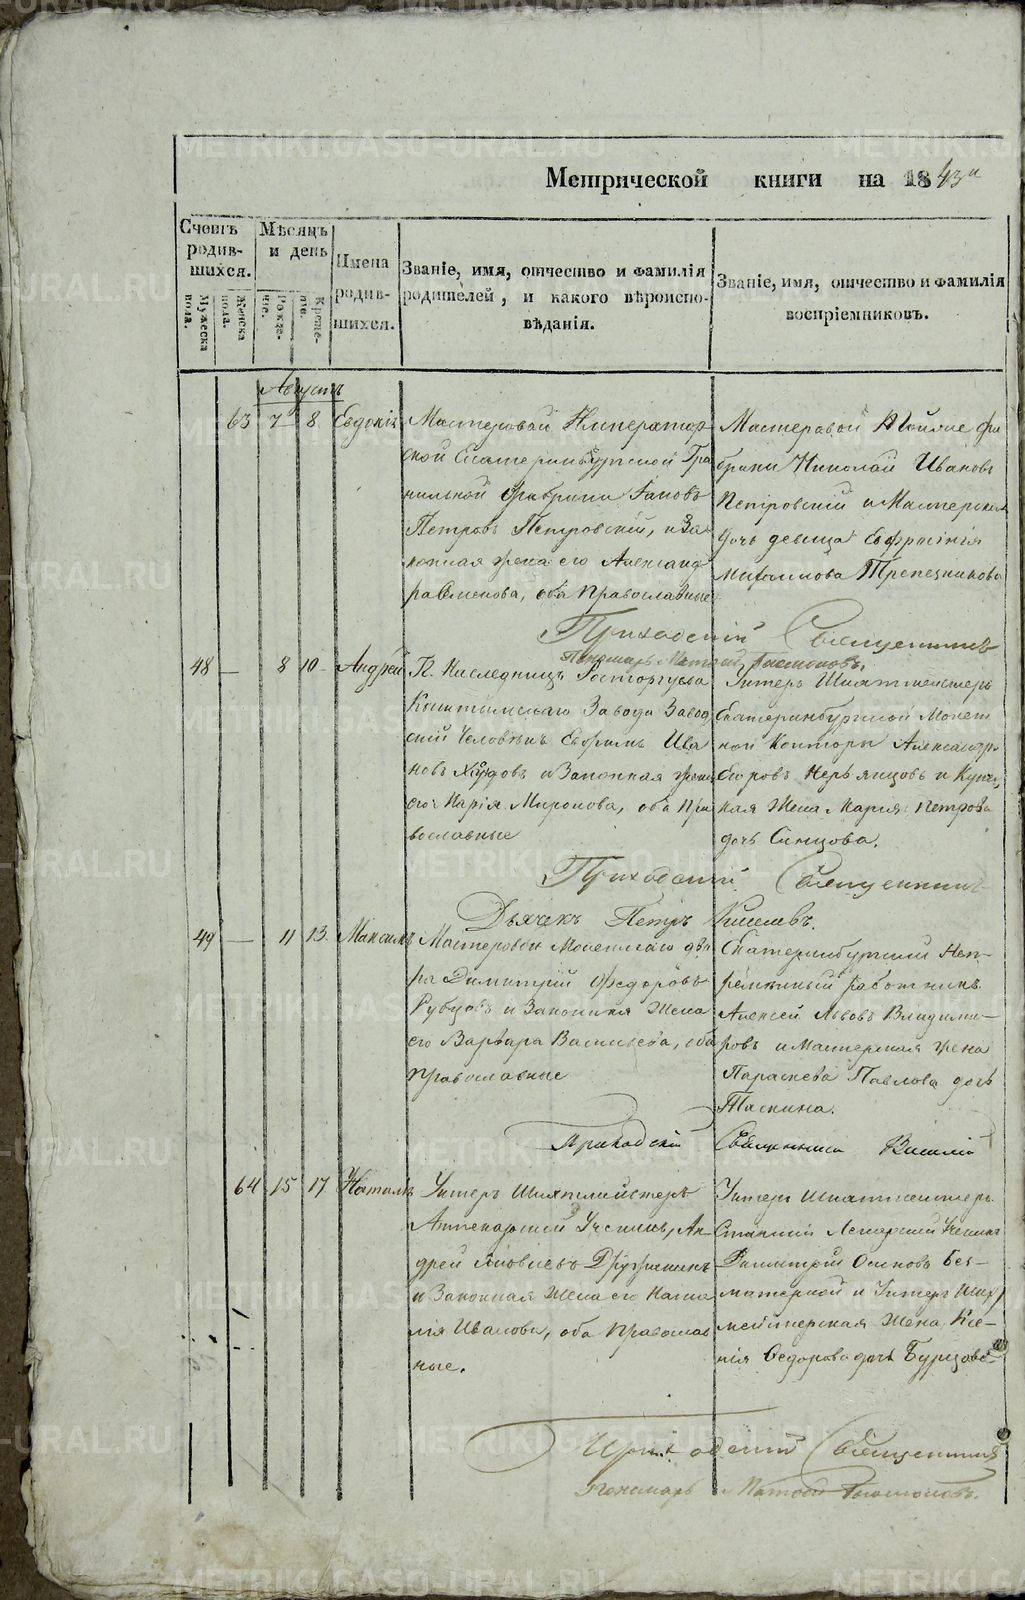 Метрической книги на 1843й
Счетъ родив-шихся.
Мужеска пола.
Женска пола.
Мѣсяцъ и день
Рожде-ніе.
Креще-ніе.
Имена родив-шихся.
Званіе, имя, отчество и фамилія
родителей, и какого вѣроиспо-
вѣданія.
Званіе, имя, отчество и фамилія
воспріемниковъ.
Августъ
63 7 8 Евдокія
Мастеровой Император
ской Екатеринбургской Гра
нильной Фабрики Іаковъ
Петровъ Петровскій, и за
конная жена его Александ
ра Семенова, оба Православные
Мастеровой той же фа
брики Николай Ивановъ
Петровскій и Мастерская
дочь девица Евфросинья
Трепезникова
Приходскій Священникъ
Пономарь
48 — 8 10 Андрей
Г. Наследницъ Расторгуева
Кыштымскаго Завода Завод
скій Человѣкъ Ефимъ Ива
новъ и Законная жена
его Марія Миронова, оба Пра
вославные
Унтеръ Шихтмейстеръ
Екатеринбургской Монет
ной Конторы Александръ
и Купе
кая Жена Марія Петрова
дочь Синцова.
Приходскій Священникъ
Дьячекъ Петръ Киселевъ.
49 — 11 13 Максимъ
Мастеровой Монетнаго дво
ра Димитрій Федоровъ
Рубцовъ и Законная Жена
его Варвара Васильева, оба
православные
Екатеринбургский Неп-
ремѣнный работникъ
Алексей Львовъ Владими-
ровъ и Мастерская жена
Параскева Павлова дочь
Приходскій Священникъ Василій
64 15 17 Наталья
Унтеръ Шихтмейстеръ
Аптекарскій Ученикъ, Ан-
дрей Яковлевъ Дружининъ
и Законная Жена его Ната
лія Иванова, оба Православ
ные.
Унтеръ Шихтмейстеръ
Старшій Лекарскій Ученикъ
Димитрій Осиповъ Без-
матерной и Унтеръ Шихт
мейстерская Жена Ксе-
нія Федорова дочь Бурцова
Приходскій Священникъ
Пономарь
METRIKI.GASO-URAL.RU